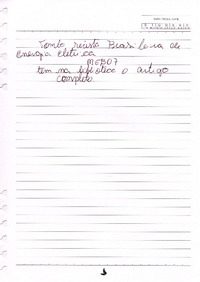 Tombo revista Brasileira de
Energia eletrica
MCB07
tem na biblioteca o artigo
completo.